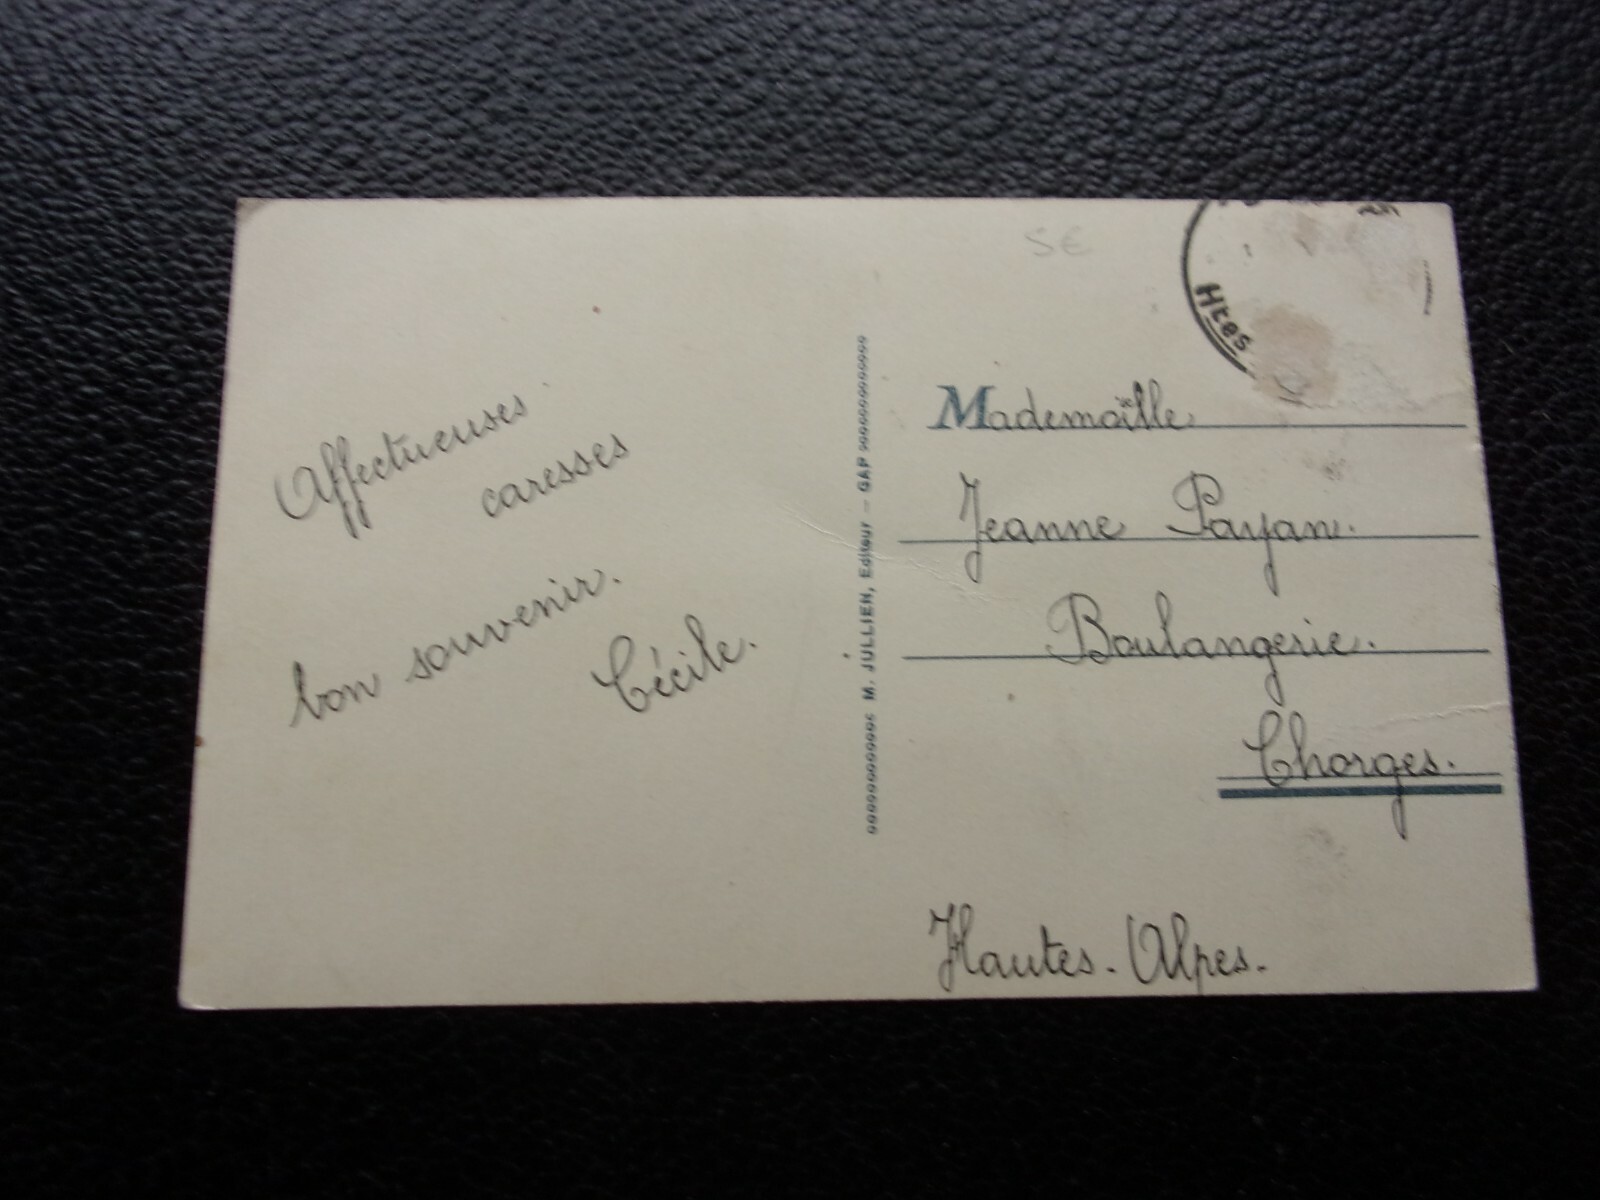 Affectueuses
caresses
bon souvenir.
Cécile.
M. JULLIEN, Editeur — GAP
5€
Htes
Mademoiselle
Jeanne Payan.
Boulangerie.
Chorges.
Hautes-Alpes.